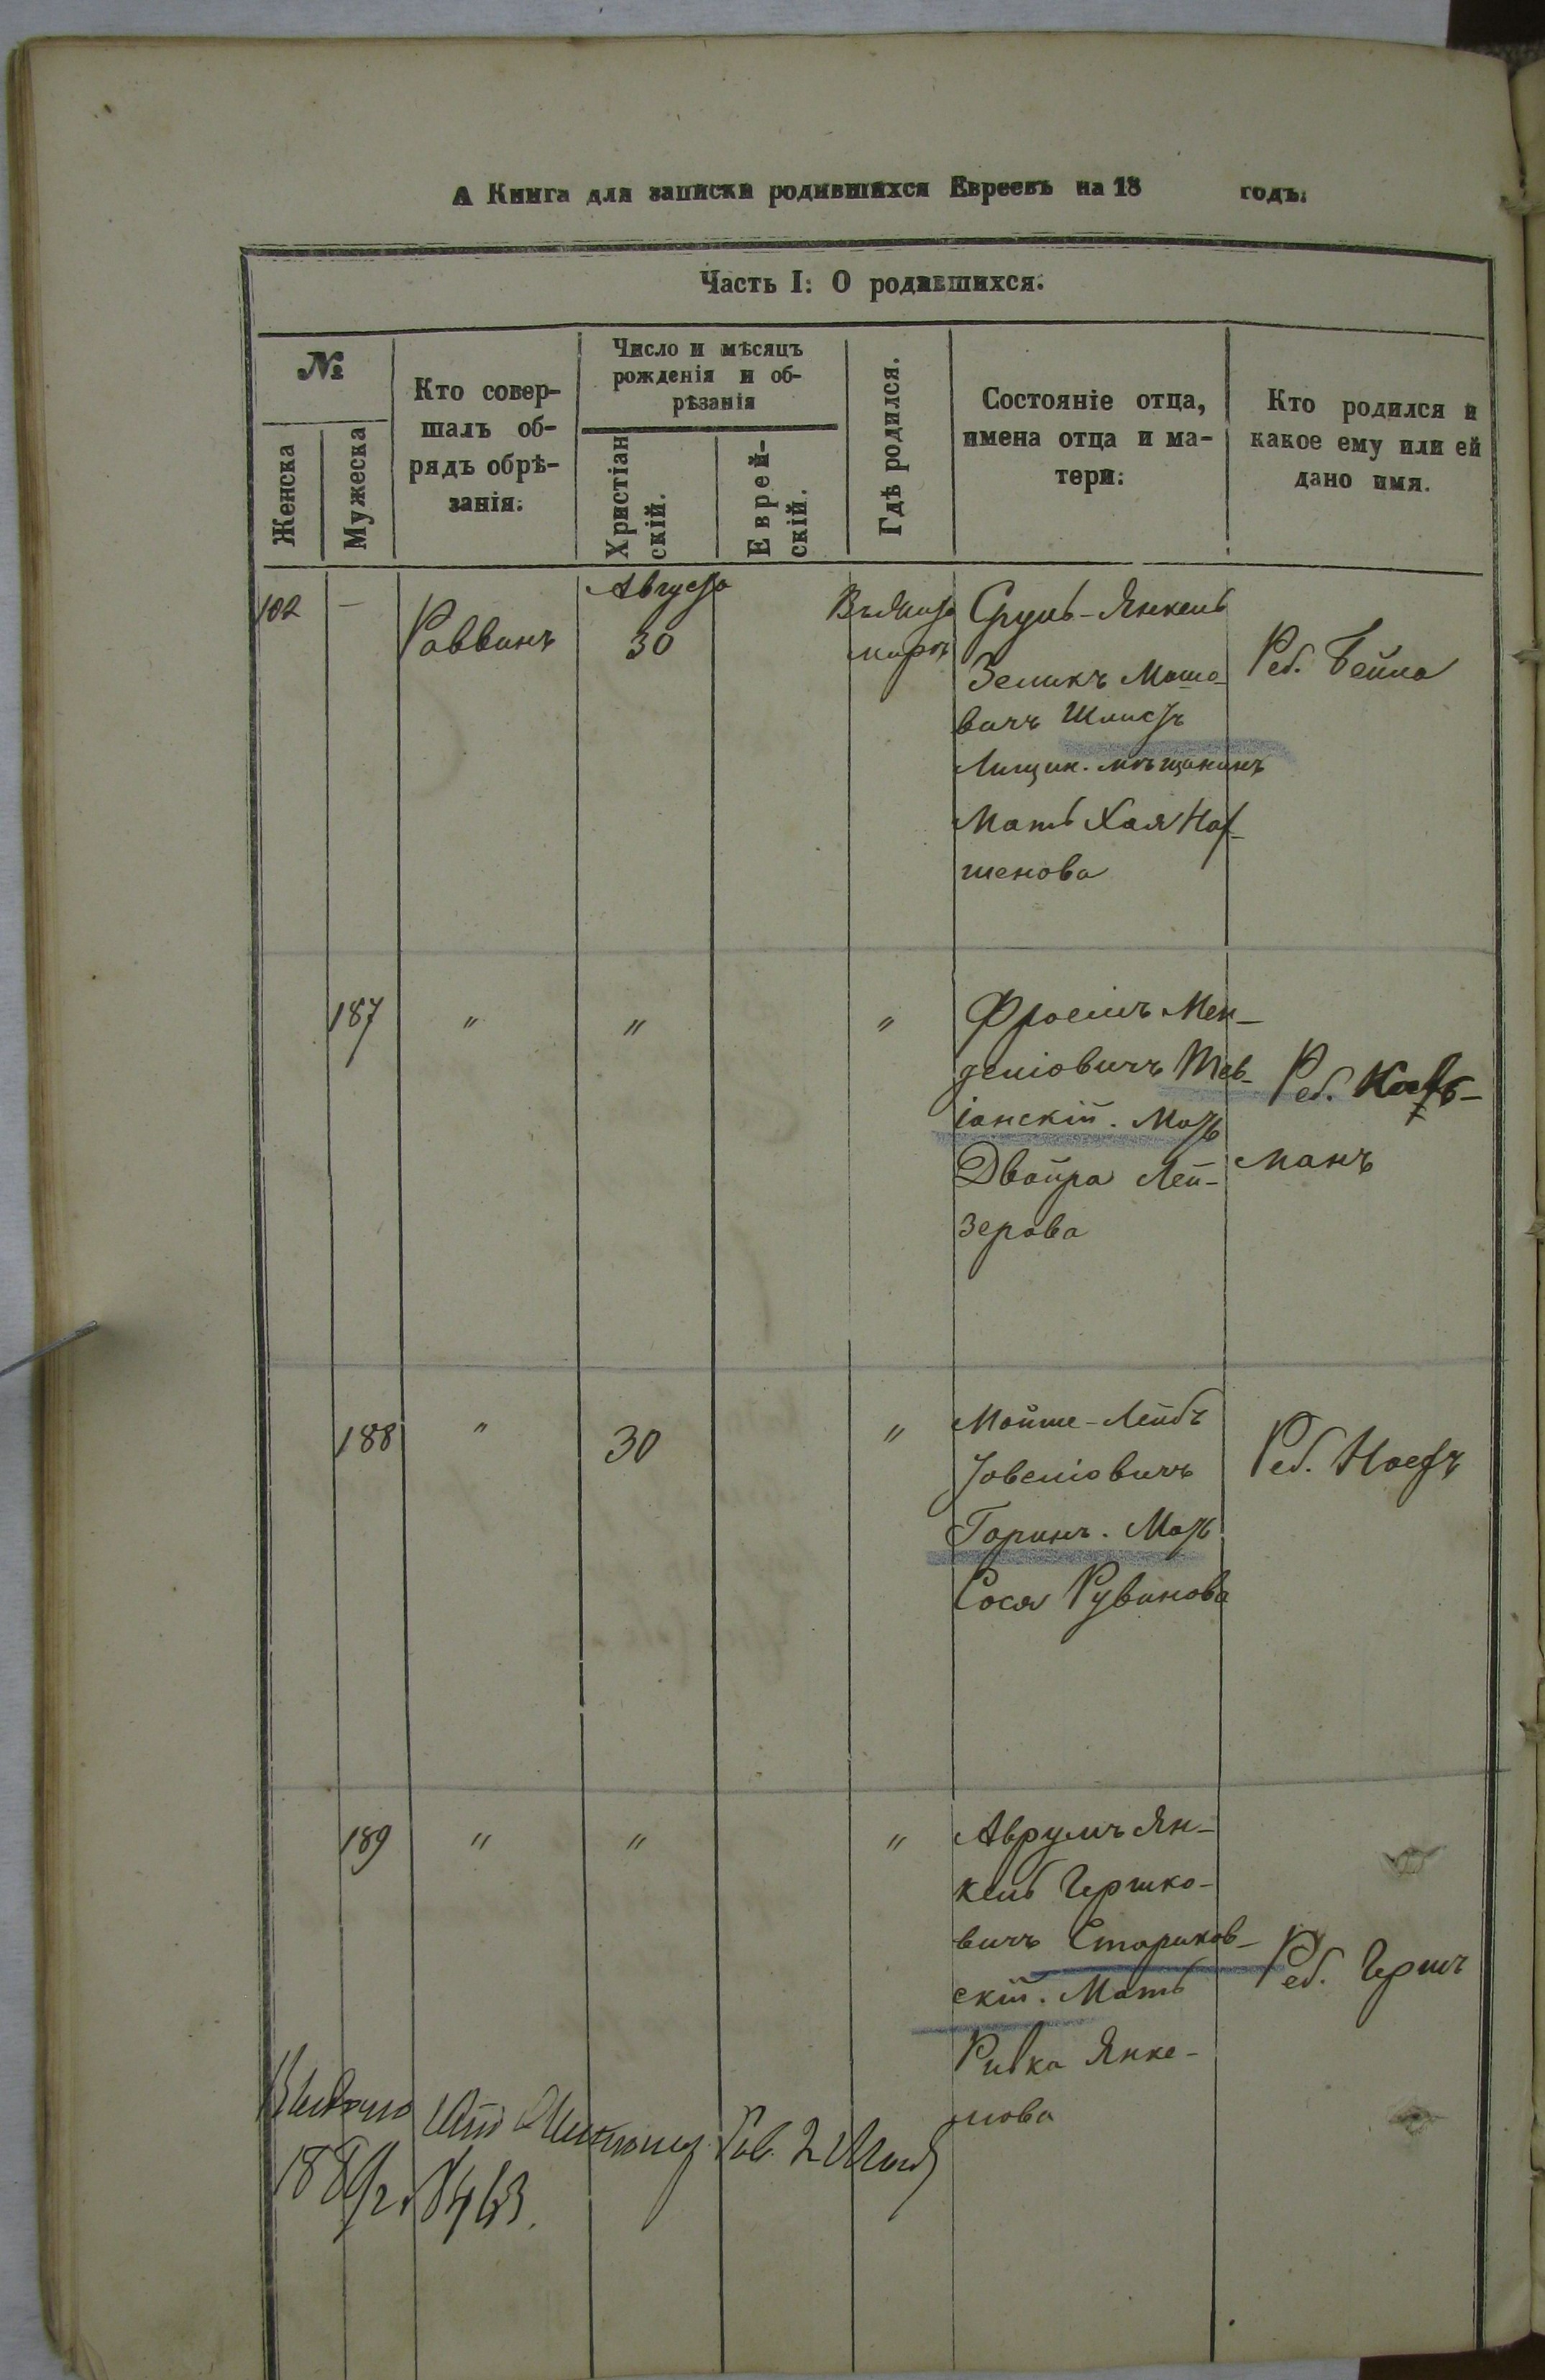 А Книга для записки родившихся Евреевъ на 18 годъ.
Часть I: О родившихся.
№
Женска
Мужеска
Кто совер-
шалъ об-
рядъ обрѣ-
занія.
Число и мѣсяцъ
рожденія и об-
рѣзанія
Христіан
скій.
Еврей-
скій.
Гдѣ родился.
Состояніе отца,
имена отца и ма-
тери:
Кто родился и
какое ему или ей
дано имя.
102
—
Раввинъ
Августа
30
Въ Жито
мирѣ
Срулъ-Янкель
Зеликъ Мошо-
вичъ
мѣщанинъ
Мать Хая
шенова
Реб. Бейла
187
"
"
"
Фроимъ Мен-
деліовичъ Тев-
іанскій. Мать
Двойра Лей-
зерова
Реб.
манъ
188
"
30
"
Мойше-Лейбъ
Іовеліовичъ
Горинъ. Мать
Сося Рувинова
Реб.
189
"
"
"
Аврумъ Ян-
кель Гершко-
вичъ Стариков-
скій. Мать
Ривка Янке-
лова
Реб. Гершъ
1889 г.